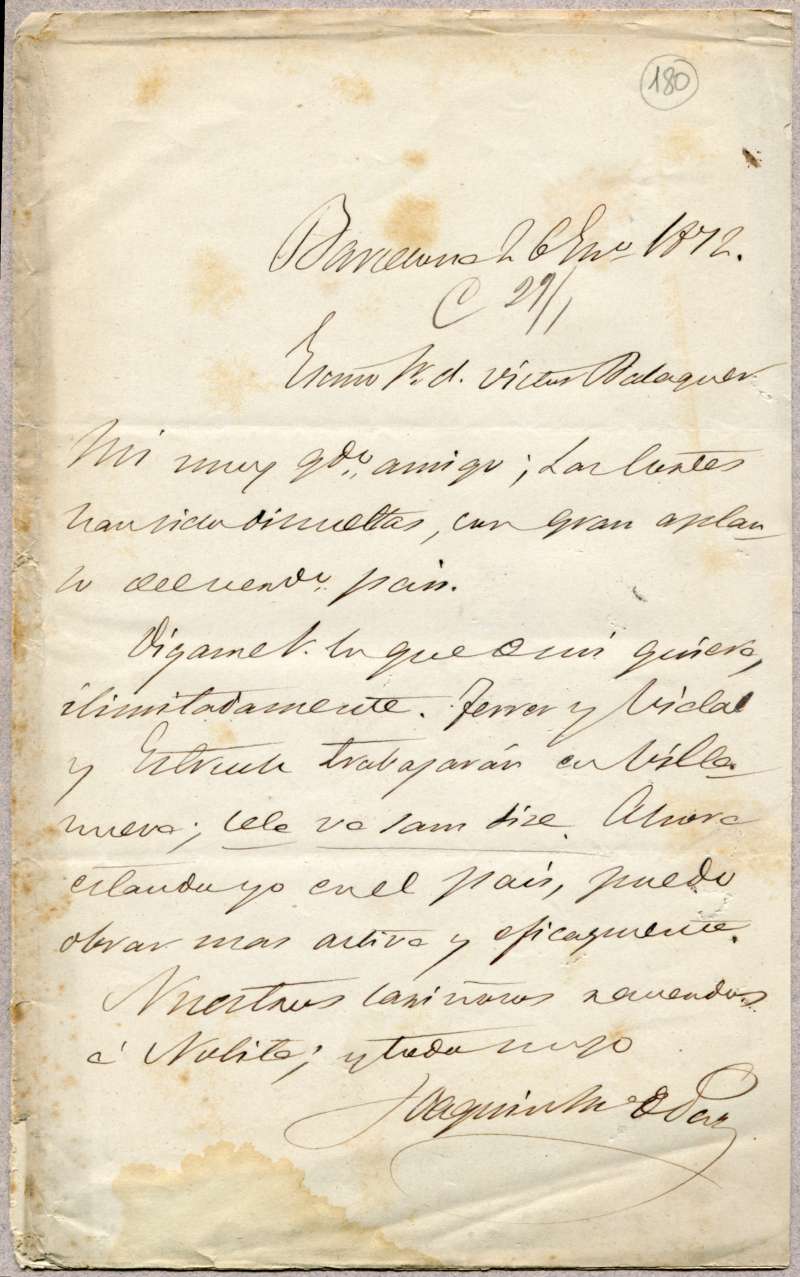 180
Barcelona 26 En.º 1872.
C 29/1
Exmo Sr. d. Victor Balaguer
Mi muy qd.º amigo; Las Cortes
han sido disueltas, con gran aplau_
so del verd.º pais.
Digame V. lo que de mi quiera,
ilimitadamente. Ferrer y Vidal
y Estruch trabajarán en Villa_
nueva; cela va sans dire. Ahora
estando yo en el pais, puedo
obrar mas activa y eficazmente.
Nuestros cariñosos recuerdos
á Nolita; y todo suyo
Joaquin M.ª de Paz